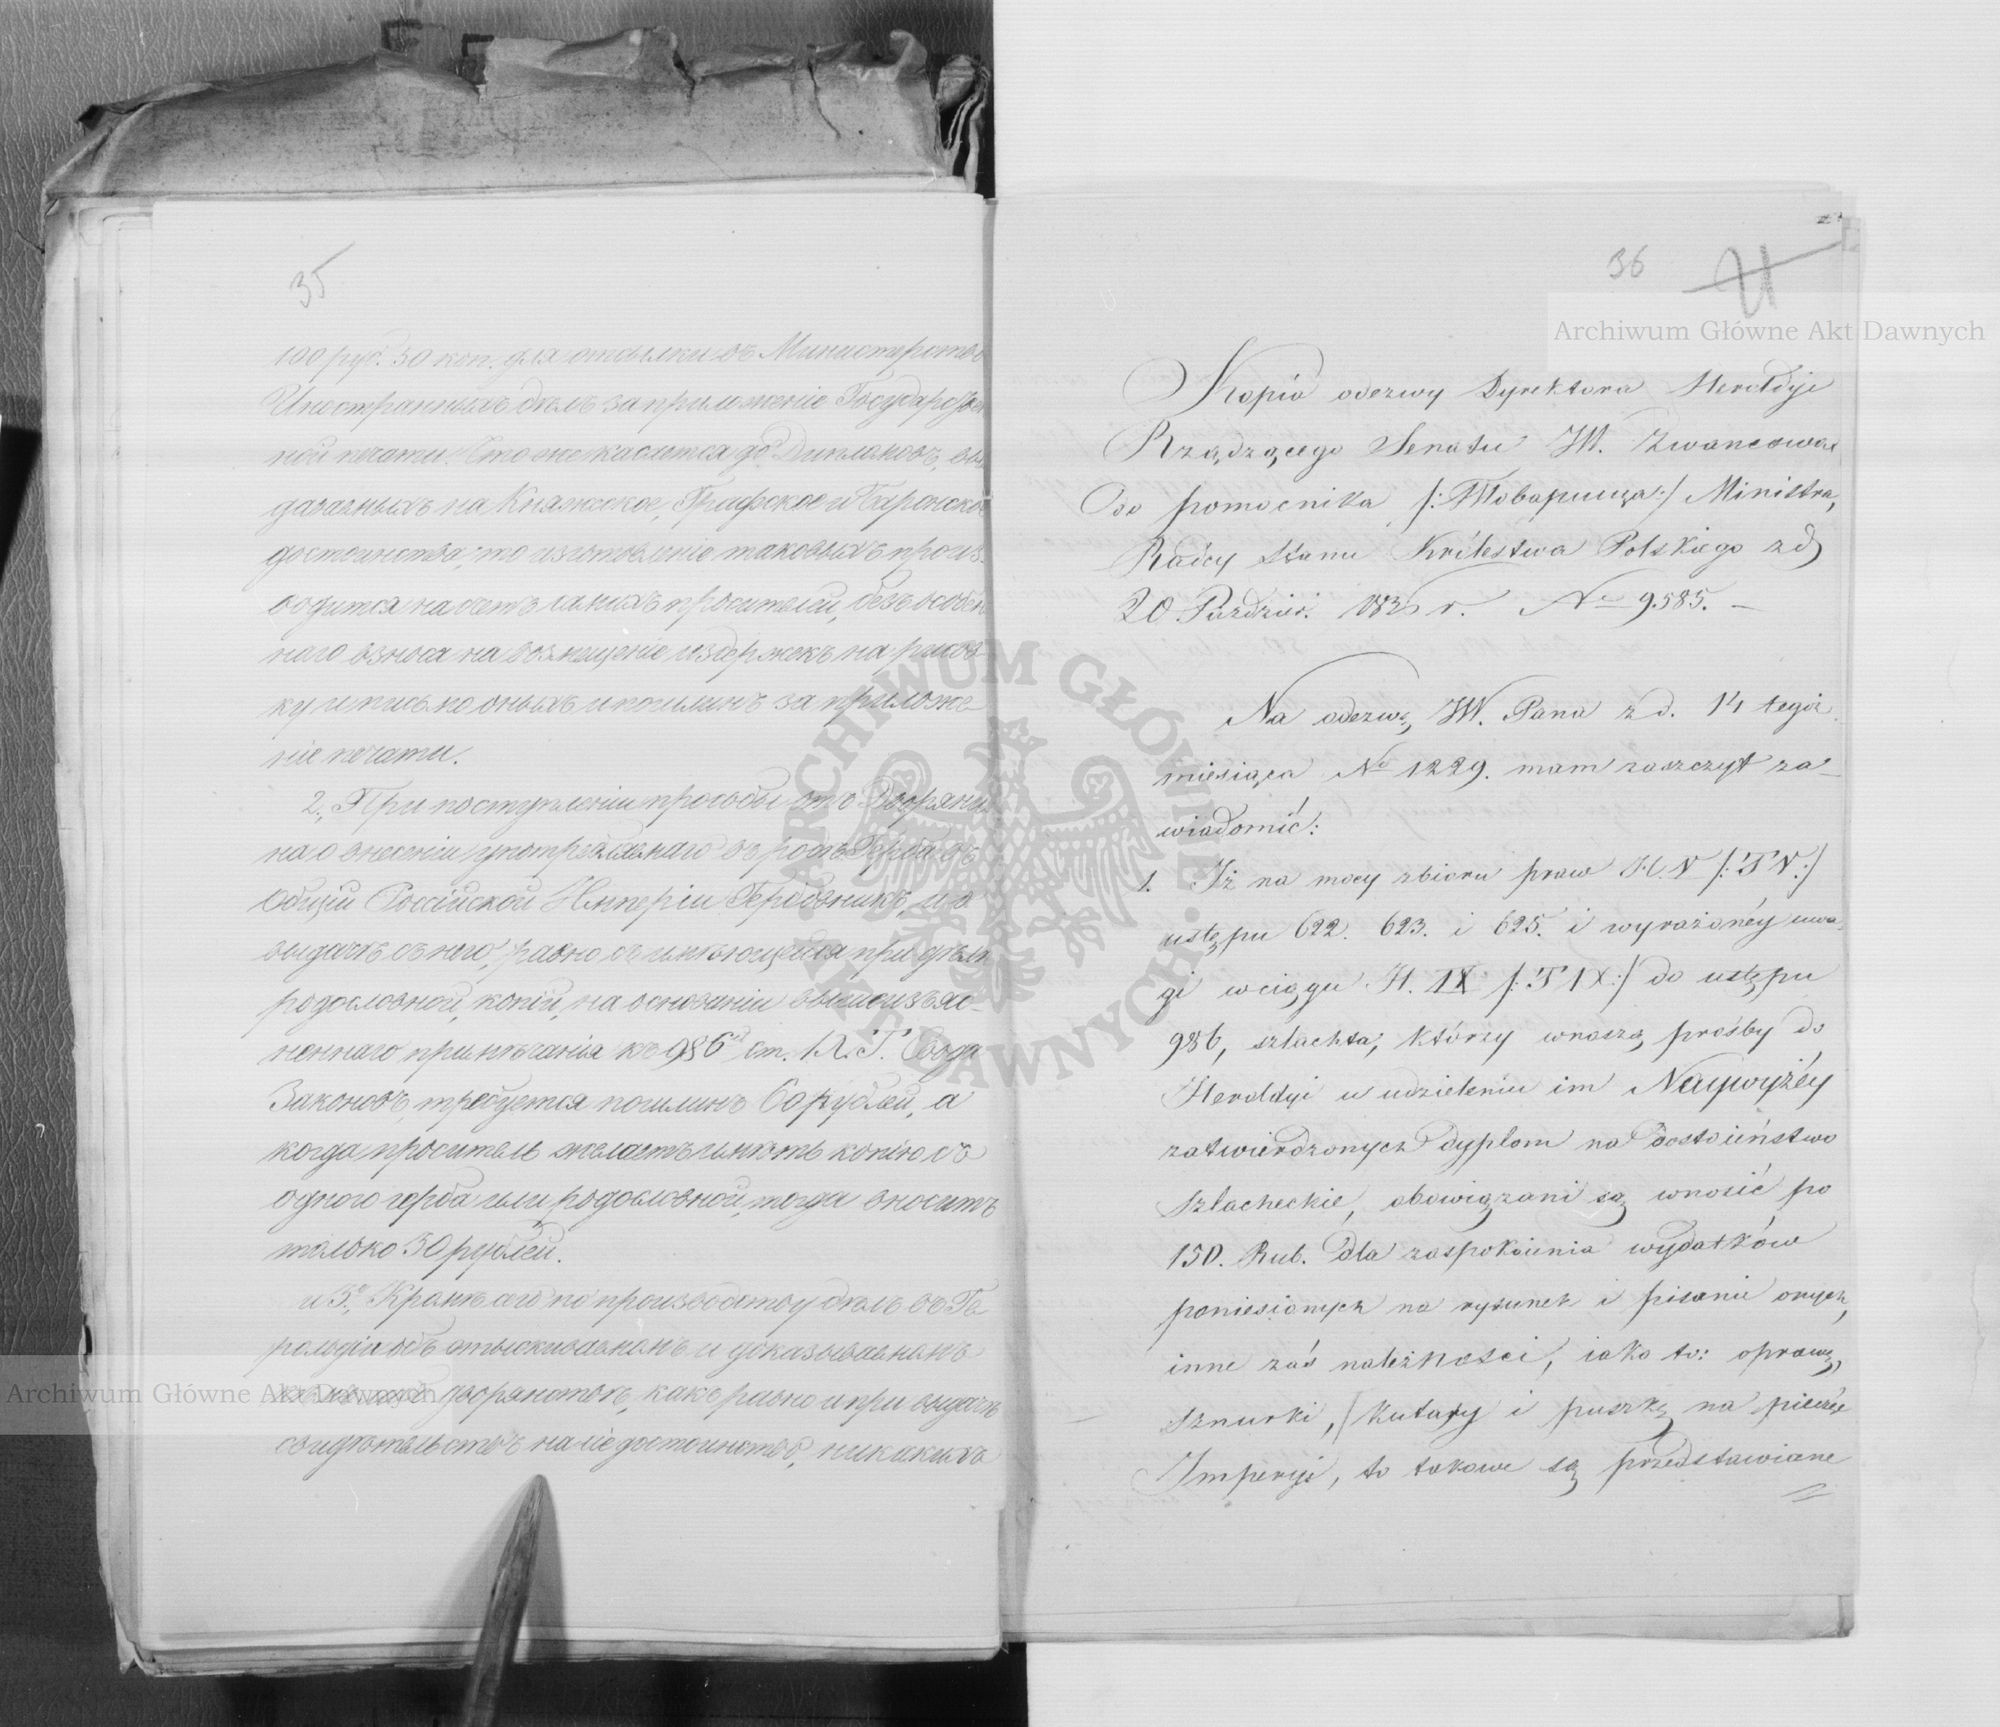 35
100 руб. 50 коп. для отсылки въ Министерство
Иностранныхъ делъ за приложеніе Государствен
ной печати. Что же касается до Дипломовъ, вы
даваемыхъ на Княжеское, Графское и Баронско
достоинства, то изготовленіе таковыхъ произ-
водится на счетъ самихъ просителей, безъ особен
наго взноса на возмещеніе издержекъ на рисов-
ку и письмо оныхъ и пошлинъ за приложе-
ніе печати.
2., При поступленіи просьбы отъ Дворяни
на о внесеніи употребляемаго въ роде Герба въ
Общій Россійской Имперіи Гербовникъ, и о
выдаче съ него, равно съ имеющейся при деле
родословной, копій, на основаніи вышеизъяс-
неннаго примечанія къ 986й ст. IX. Т. Свода
Законовъ, требуется пошлинъ 60 рублей, а
когда проситель желаетъ иметь копію съ
одного герба или родословной, тогда вноситъ
только 30 рублей.
и 3е, Кроме сего по производству делъ въ Ге
рольдіи объ отыскиваемомъ и доказываемомъ
дворянстве, какъ равно и при выдаче
свидетельствъ на сіе достоинство, никакихъ
36
Kopia odezwy Dyrektora Heroldyi
Rządzącego Senatu JW.
Do pomocnika /: Товарища :/ Ministra,
Radcy Stanu Królestwa Polskiego z d
20 Paździer. 183 r. No 9.585. –
Na odezwę JW. Pana z d. 14 tegoż
miesiąca No 1229. mam zaszczyt za-
wiadomić:
1. Iż na mocy zbioru praw
ustępu 622. 623. i 625. i wyrażonéy uwa-
gi w ciągu H. IX /: T IX :/ do ustępu
986, szlachta, którzy wnoszą prośby do
Heroldyi o udzielenie im Naywyżéy
zatwierdzonych dyplom na dostoieństwo
szlacheckie, obowiązani są wnosić po
150. Rub. dla zaspokoienia wydatków
poniesionych na rysunek i pisanie onych,
inne zaś należności, iako to: oprawę,
sznurki, kutasy i puszkę na pieczęć
Imperyi, to takowe są przedstawiane
Archiwum Główne Akt Dawnych
Archiwum Główne Akt Dawnych
ARCHIWUM GŁÓWNE AKT DAWNYCH